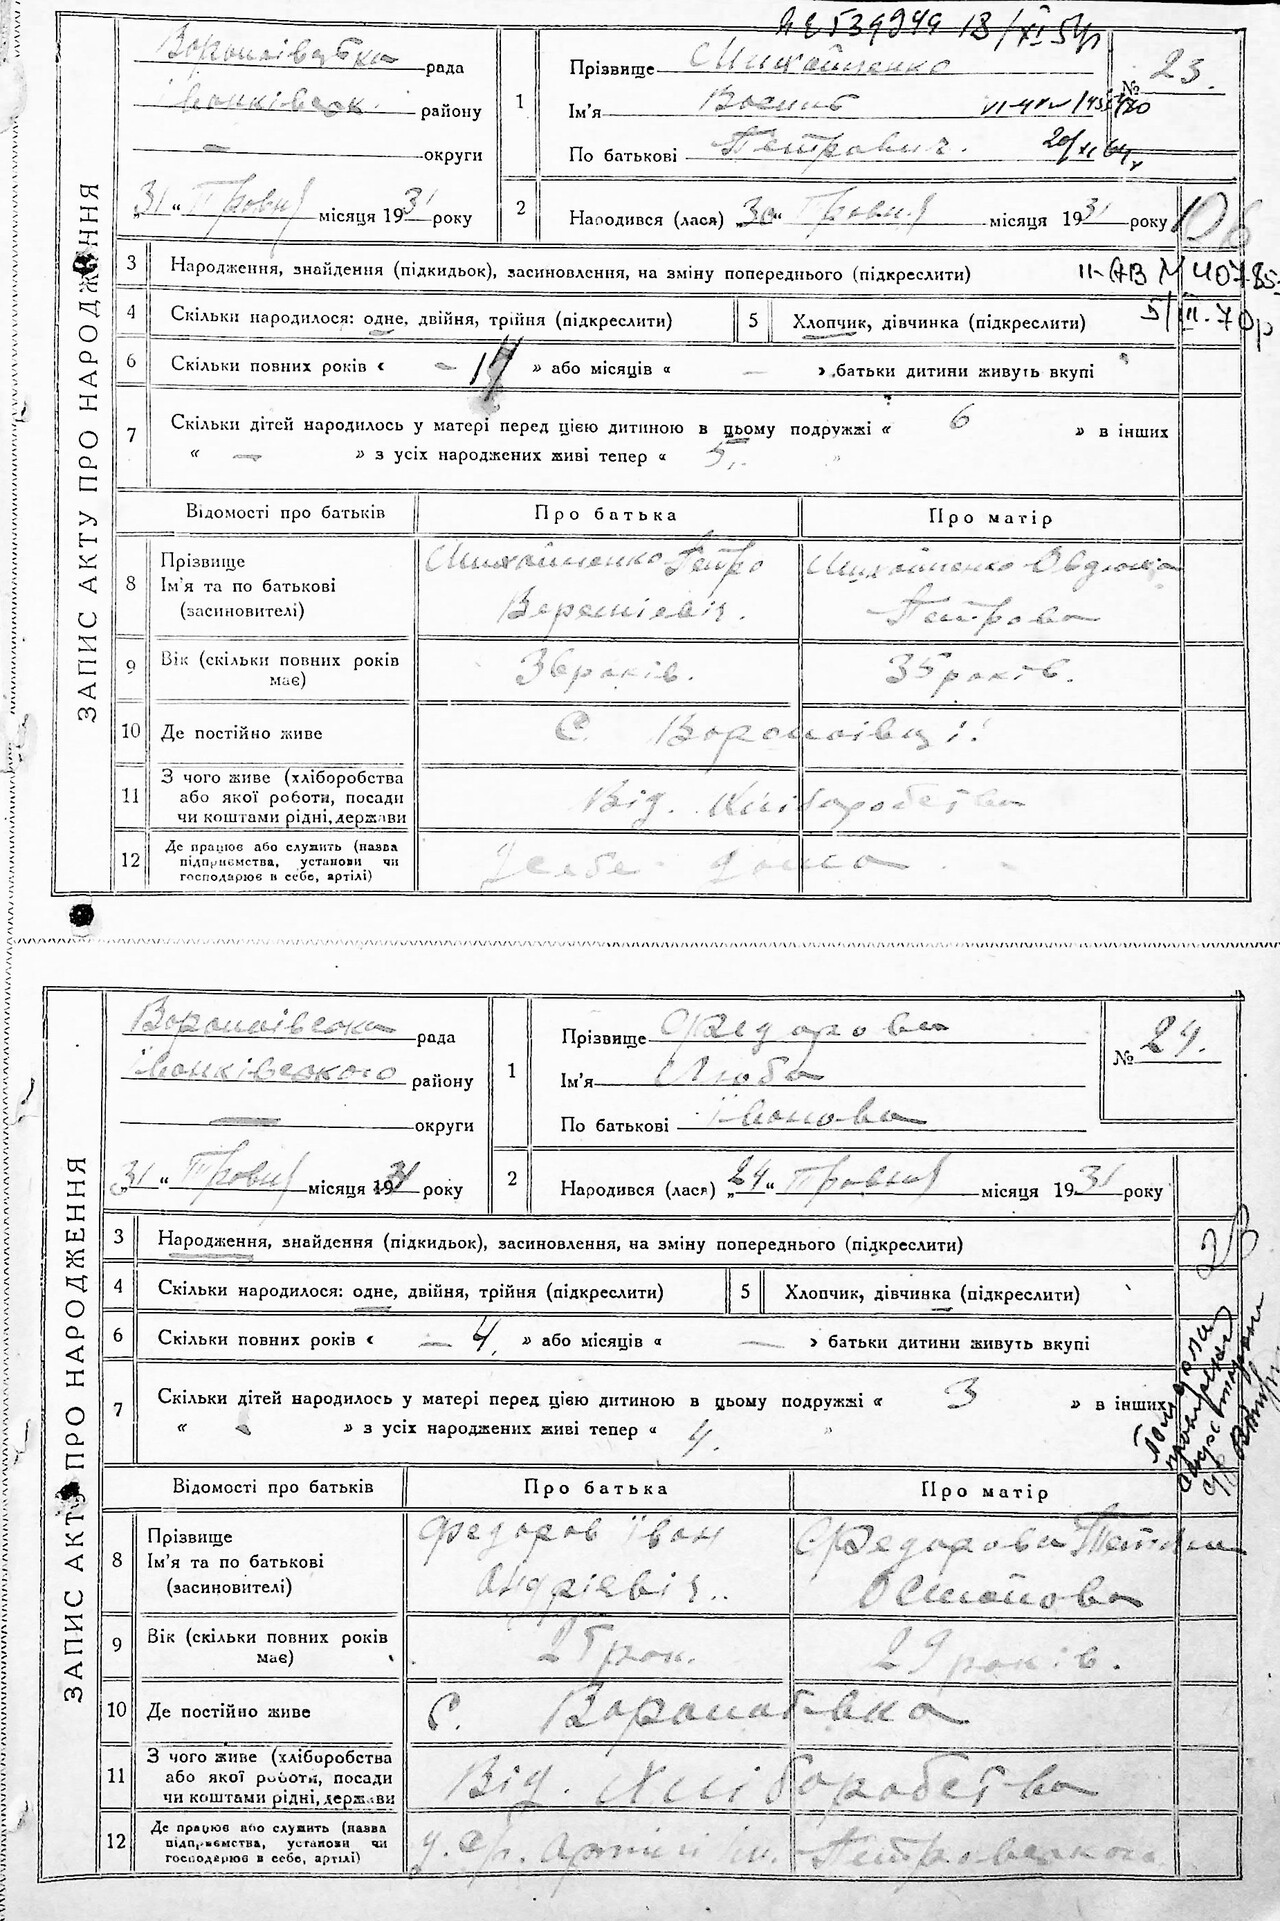 ЗАПИС АКТУ ПРО НАРОДЖЕННЯ
рада
району
— округи
„31“ Травня місяця 1931 року
1
Прізвище Михайленко
Ім'я
По батькові Петрович.
№ 23.
2
Народився (лася) „30“ Травня місяця 1931 року
3 Народження, знайдення (підкидьок), засиновлення, на зміну попереднього (підкреслити)
4 Скільки народилося: одне, двійня, трійня (підкреслити)
5 Хлопчик, дівчинка (підкреслити)
6 Скільки повних років « — 14 » або місяців « — » батьки дитини живуть вкупі
7 Скільки дітей народилось у матері перед цією дитиною в цьому подружжі « 6 » в інших
« — » з усіх народжених живі тепер « 5.
Відомості про батьків Про батька Про матір
8 Прізвище
Ім'я та по батькові
(засиновителі)
Михайленко Петро
Михайленко
Петрова
9 Вік (скільки повних років має)
36 років. 35 років.
10 Де постійно живе
с.
11 З чого живе (хліборобства
або якої роботи, посади
чи коштами рідні, держави
Від. хліборобства
12 Де працює або служить (назва
підприємства, установи чи
господарює в себе, артілі)
У себе дома
ЗАПИС АКТУ ПРО НАРОДЖЕННЯ
рада
Іванківського району
— округи
„31“ Травня місяця 1931 року
1
Прізвище Федорова
Ім'я Люба
По батькові Іванова
№ 24.
2
Народився (лася) „24“ Травня місяця 1931 року
3 Народження, знайдення (підкидьок), засиновлення, на зміну попереднього (підкреслити)
4 Скільки народилося: одне, двійня, трійня (підкреслити)
5 Хлопчик, дівчинка (підкреслити)
6 Скільки повних років « — 4, » або місяців « — » батьки дитини живуть вкупі
7 Скільки дітей народилось у матері перед цією дитиною в цьому подружжі « 3 » в інших
« » з усіх народжених живі тепер « 4.
Відомості про батьків Про батька Про матір
8 Прізвище
Ім'я та по батькові
(засиновителі)
Федоров Іван
Андрієвіч..
Федорова
9 Вік (скільки повних років має)
25 рок. 29 років.
10 Де постійно живе
с.
11 З чого живе (хліборобства
або якої роботи, посади
чи коштами рідні, держави
Від. Хліборобства
12 Де працює або служить (назва
підприємства, установи чи
господарює в себе, артілі)
Артілі ім. Петровського